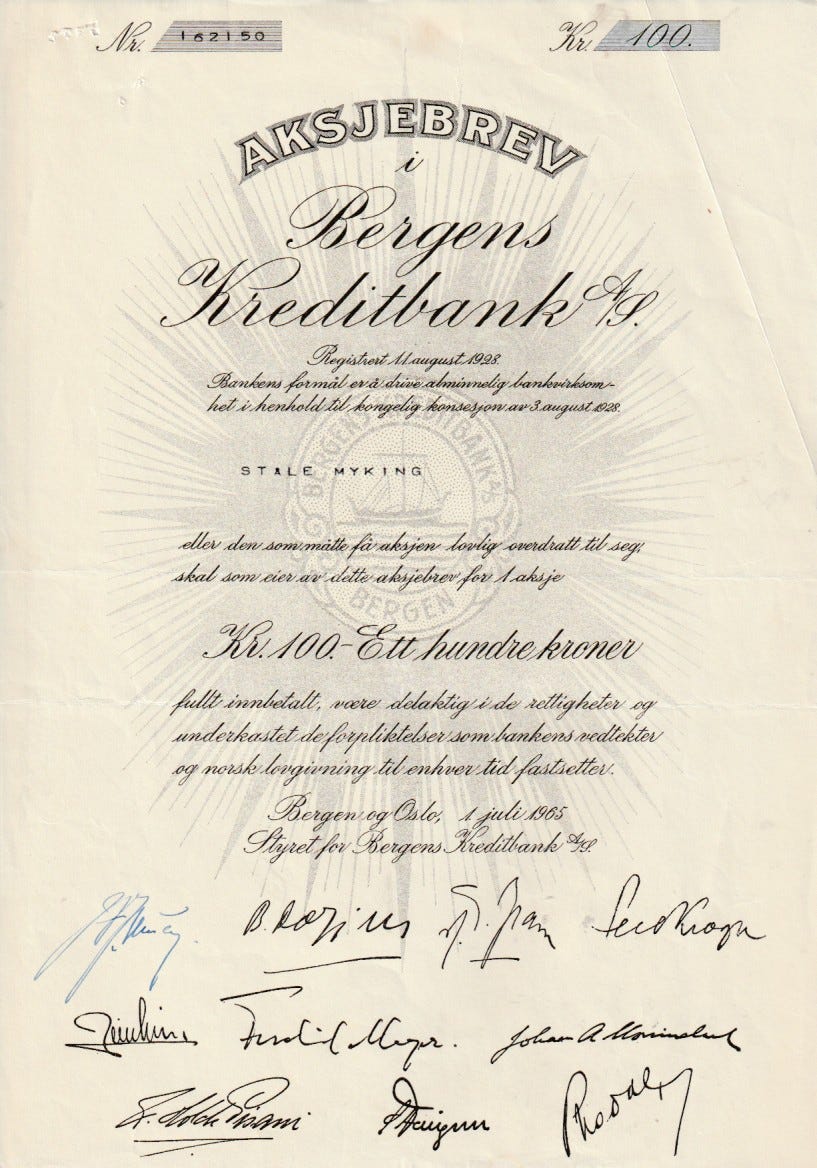 Nr. 162150
Kr. 100.
AKSJEBREV
i
Bergens
Kreditbank A/S.
Registrert 11 august 1928.
Bankens formål er å drive alminnelig bankvirksom-
het i henhold til kongelig konsesjon av 3. august 1928.
BERGENS KREDITBANK A/S
STÅLE MYKING
eller den som måtte få aksjen lovlig overdratt til seg,
skal som eier av dette aksjebrev for 1 aksje
BERGEN
Kr. 100.- Ett hundre kroner
fullt innbetalt, være delaktig i de rettigheter og
underkastet de forpliktelser som bankens vedtekter
og norsk lovgivning til enhver tid fastsetter.
Bergen og Oslo, 1 juli 1965
Styret for Bergens Kreditbank A/S.